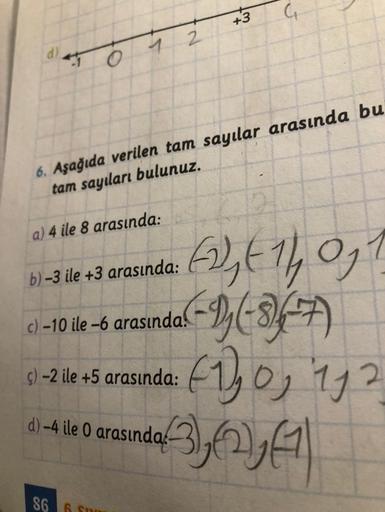 +3 4
d) -1 0 1 2
6. Aşağıda verilen tam sayılar arasında bu
tam sayıları bulunuz.
a) 4 ile 8 arasında:
b) -3 ile +3 arasında: (-2), (-1), 0, 1
c) -10 ile -6 arasında: (-9), (-8), (-7)
ç) -2 ile +5 arasında: (-1), 0, 1, 2
d) -4 ile 0 arasında: (-3), (-2), (-1)
86